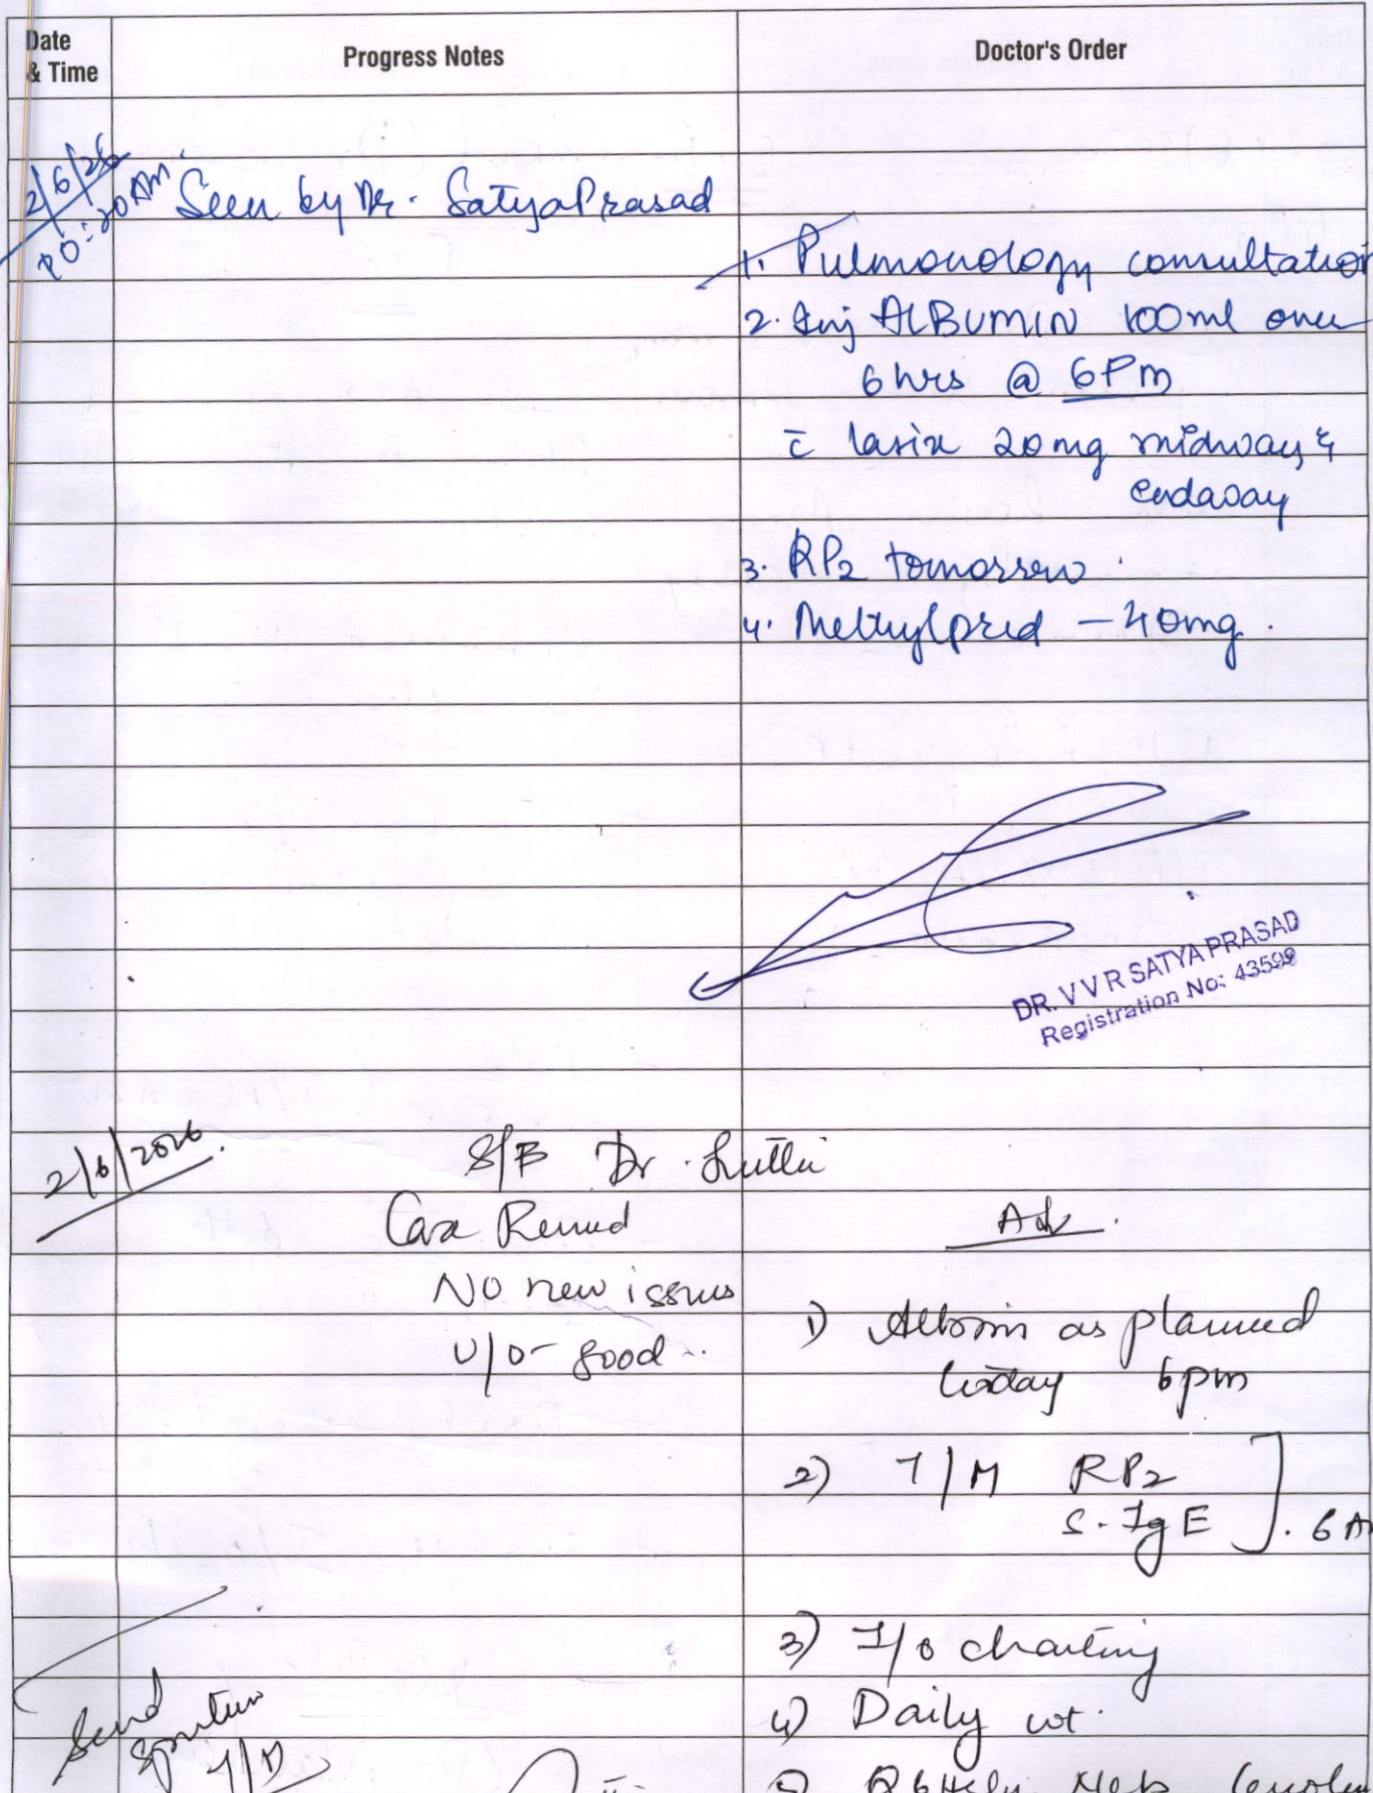 Date
& Time
Progress Notes
Doctor's Order
2/6/26
10:20 AM
Seen by Dr. SatyaPrasad
1. Pulmonology consultation
2. Inj ALBUMIN 100ml over
6 hrs @ 6PM
c̄ lasix 20mg midway &
endaway
3. RP2 tomorrow.
4. Methylpred - 40mg.
DR. V V R SATYA PRASAD
Registration No: 43598
2/6/2026
S/B Dr.
No new issues
U/O - good.
Adv.
1) Albumin as planned
today 6pm
2) T/M RP2
S. IgE ]. 6 A
3) I/O charting
4) Daily wt.
Send
5)